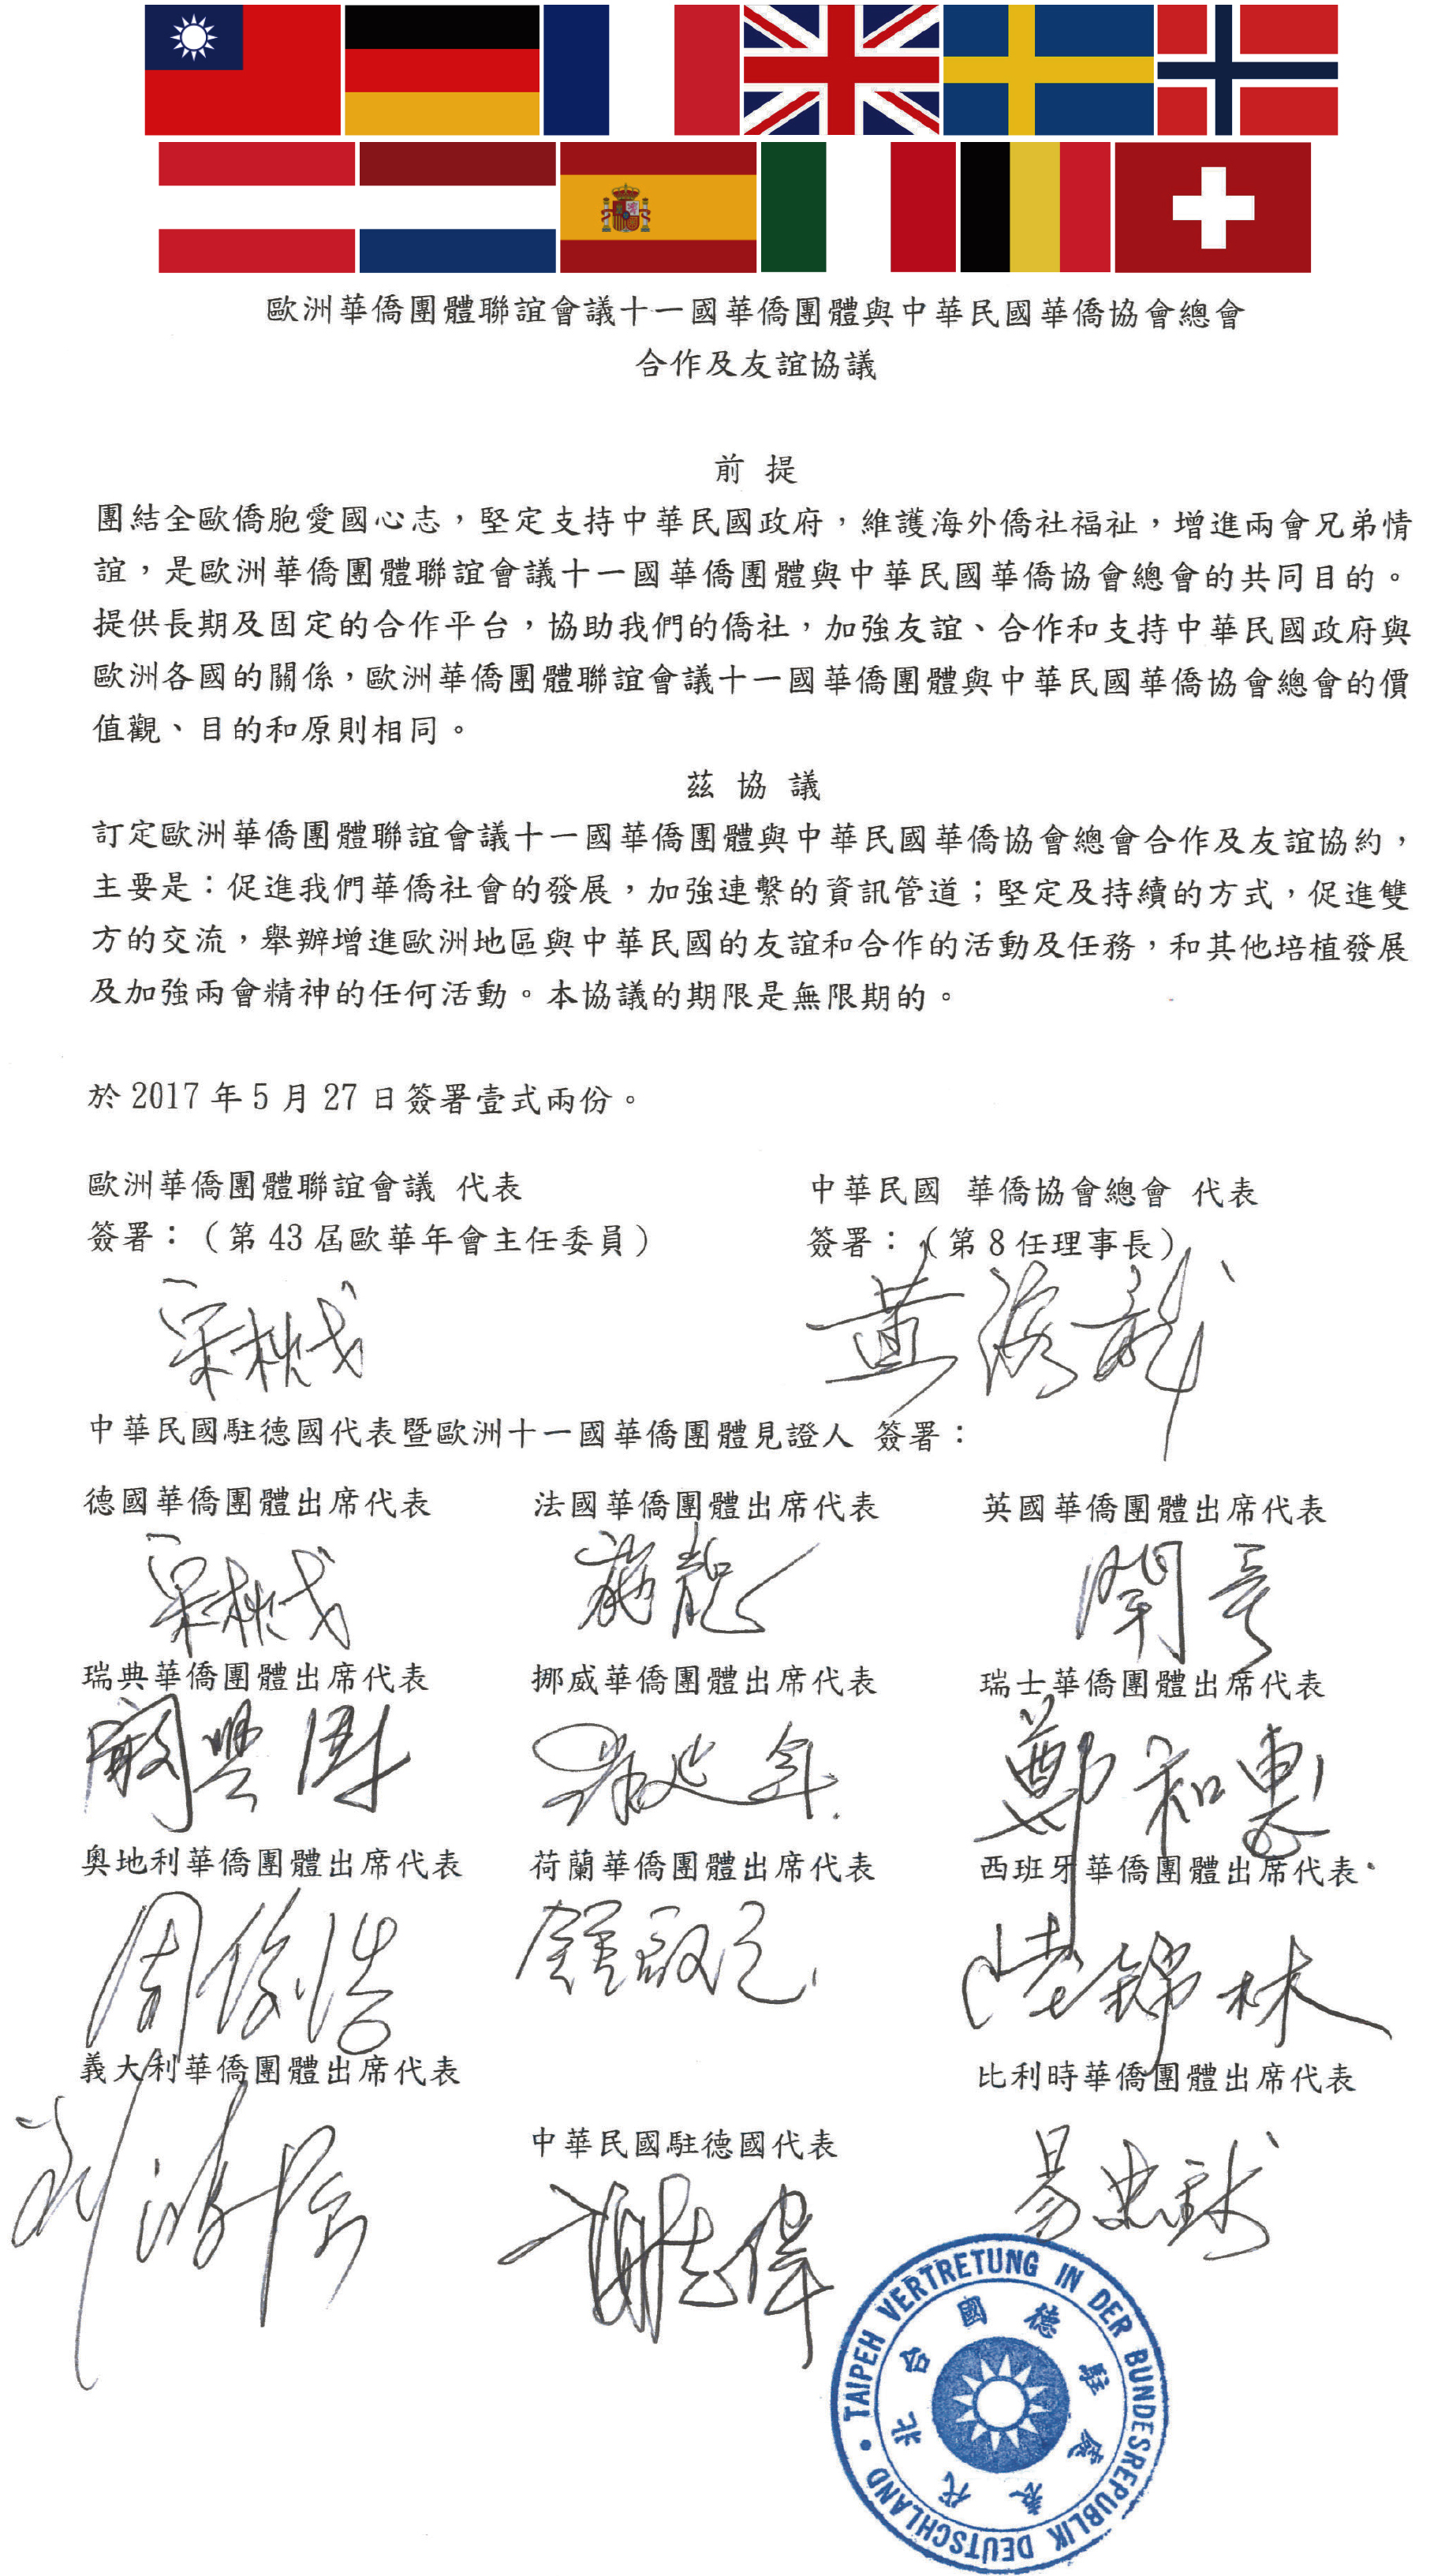 歐洲華僑團體聯誼會議十一國華僑團體與中華民國華僑協會總會
合作及友誼協議
前 提
團結全歐僑胞愛國心志，堅定支持中華民國政府，維護海外僑社福祉，增進兩會兄弟情
誼，是歐洲華僑團體聯誼會議十一國華僑團體與中華民國華僑協會總會的共同目的。
提供長期及固定的合作平台，協助我們的僑社，加強友誼、合作和支持中華民國政府與
歐洲各國的關係，歐洲華僑團體聯誼會議十一國華僑團體與中華民國華僑協會總會的價
值觀、目的和原則相同。
茲 協 議
訂定歐洲華僑團體聯誼會議十一國華僑團體與中華民國華僑協會總會合作及友誼協約，
主要是：促進我們華僑社會的發展，加強連繫的資訊管道；堅定及持續的方式，促進雙
方的交流，舉辦增進歐洲地區與中華民國的友誼和合作的活動及任務，和其他培植發展
及加強兩會精神的任何活動。本協議的期限是無限期的。
於 2017 年 5 月 27 日簽署壹式兩份。
歐洲華僑團體聯誼會議 代表
中華民國 華僑協會總會 代表
簽署：（第 43 屆歐華年會主任委員）
簽署：（第 8 任理事長）
中華民國駐德國代表暨歐洲十一國華僑團體見證人 簽署：
德國華僑團體出席代表
法國華僑團體出席代表
英國華僑團體出席代表
瑞典華僑團體出席代表
挪威華僑團體出席代表
瑞士華僑團體出席代表
鄭和惠
奧地利華僑團體出席代表
荷蘭華僑團體出席代表
西班牙華僑團體出席代表
義大利華僑團體出席代表
比利時華僑團體出席代表
中華民國駐德國代表
謝志偉
TAIPEH VERTRETUNG IN DER BUNDESREPUBLIK DEUTSCHLAND
駐德國台北代表處